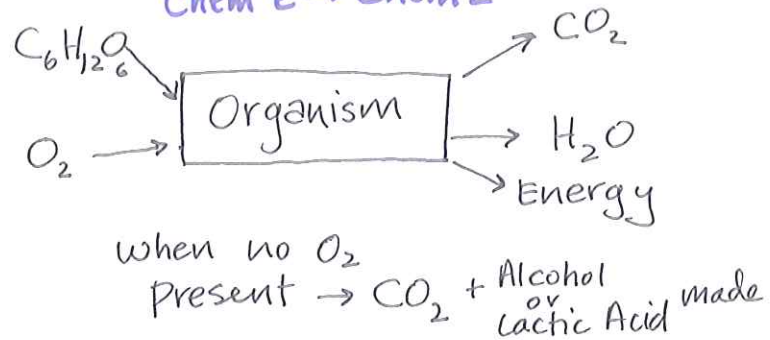 Chem E → Chem E
C₆H₁₂O₆
CO₂
Organism
O₂ →
→ H₂O
Energy
when no O₂
Present → CO₂ + Alcohol
or
Lactic Acid made